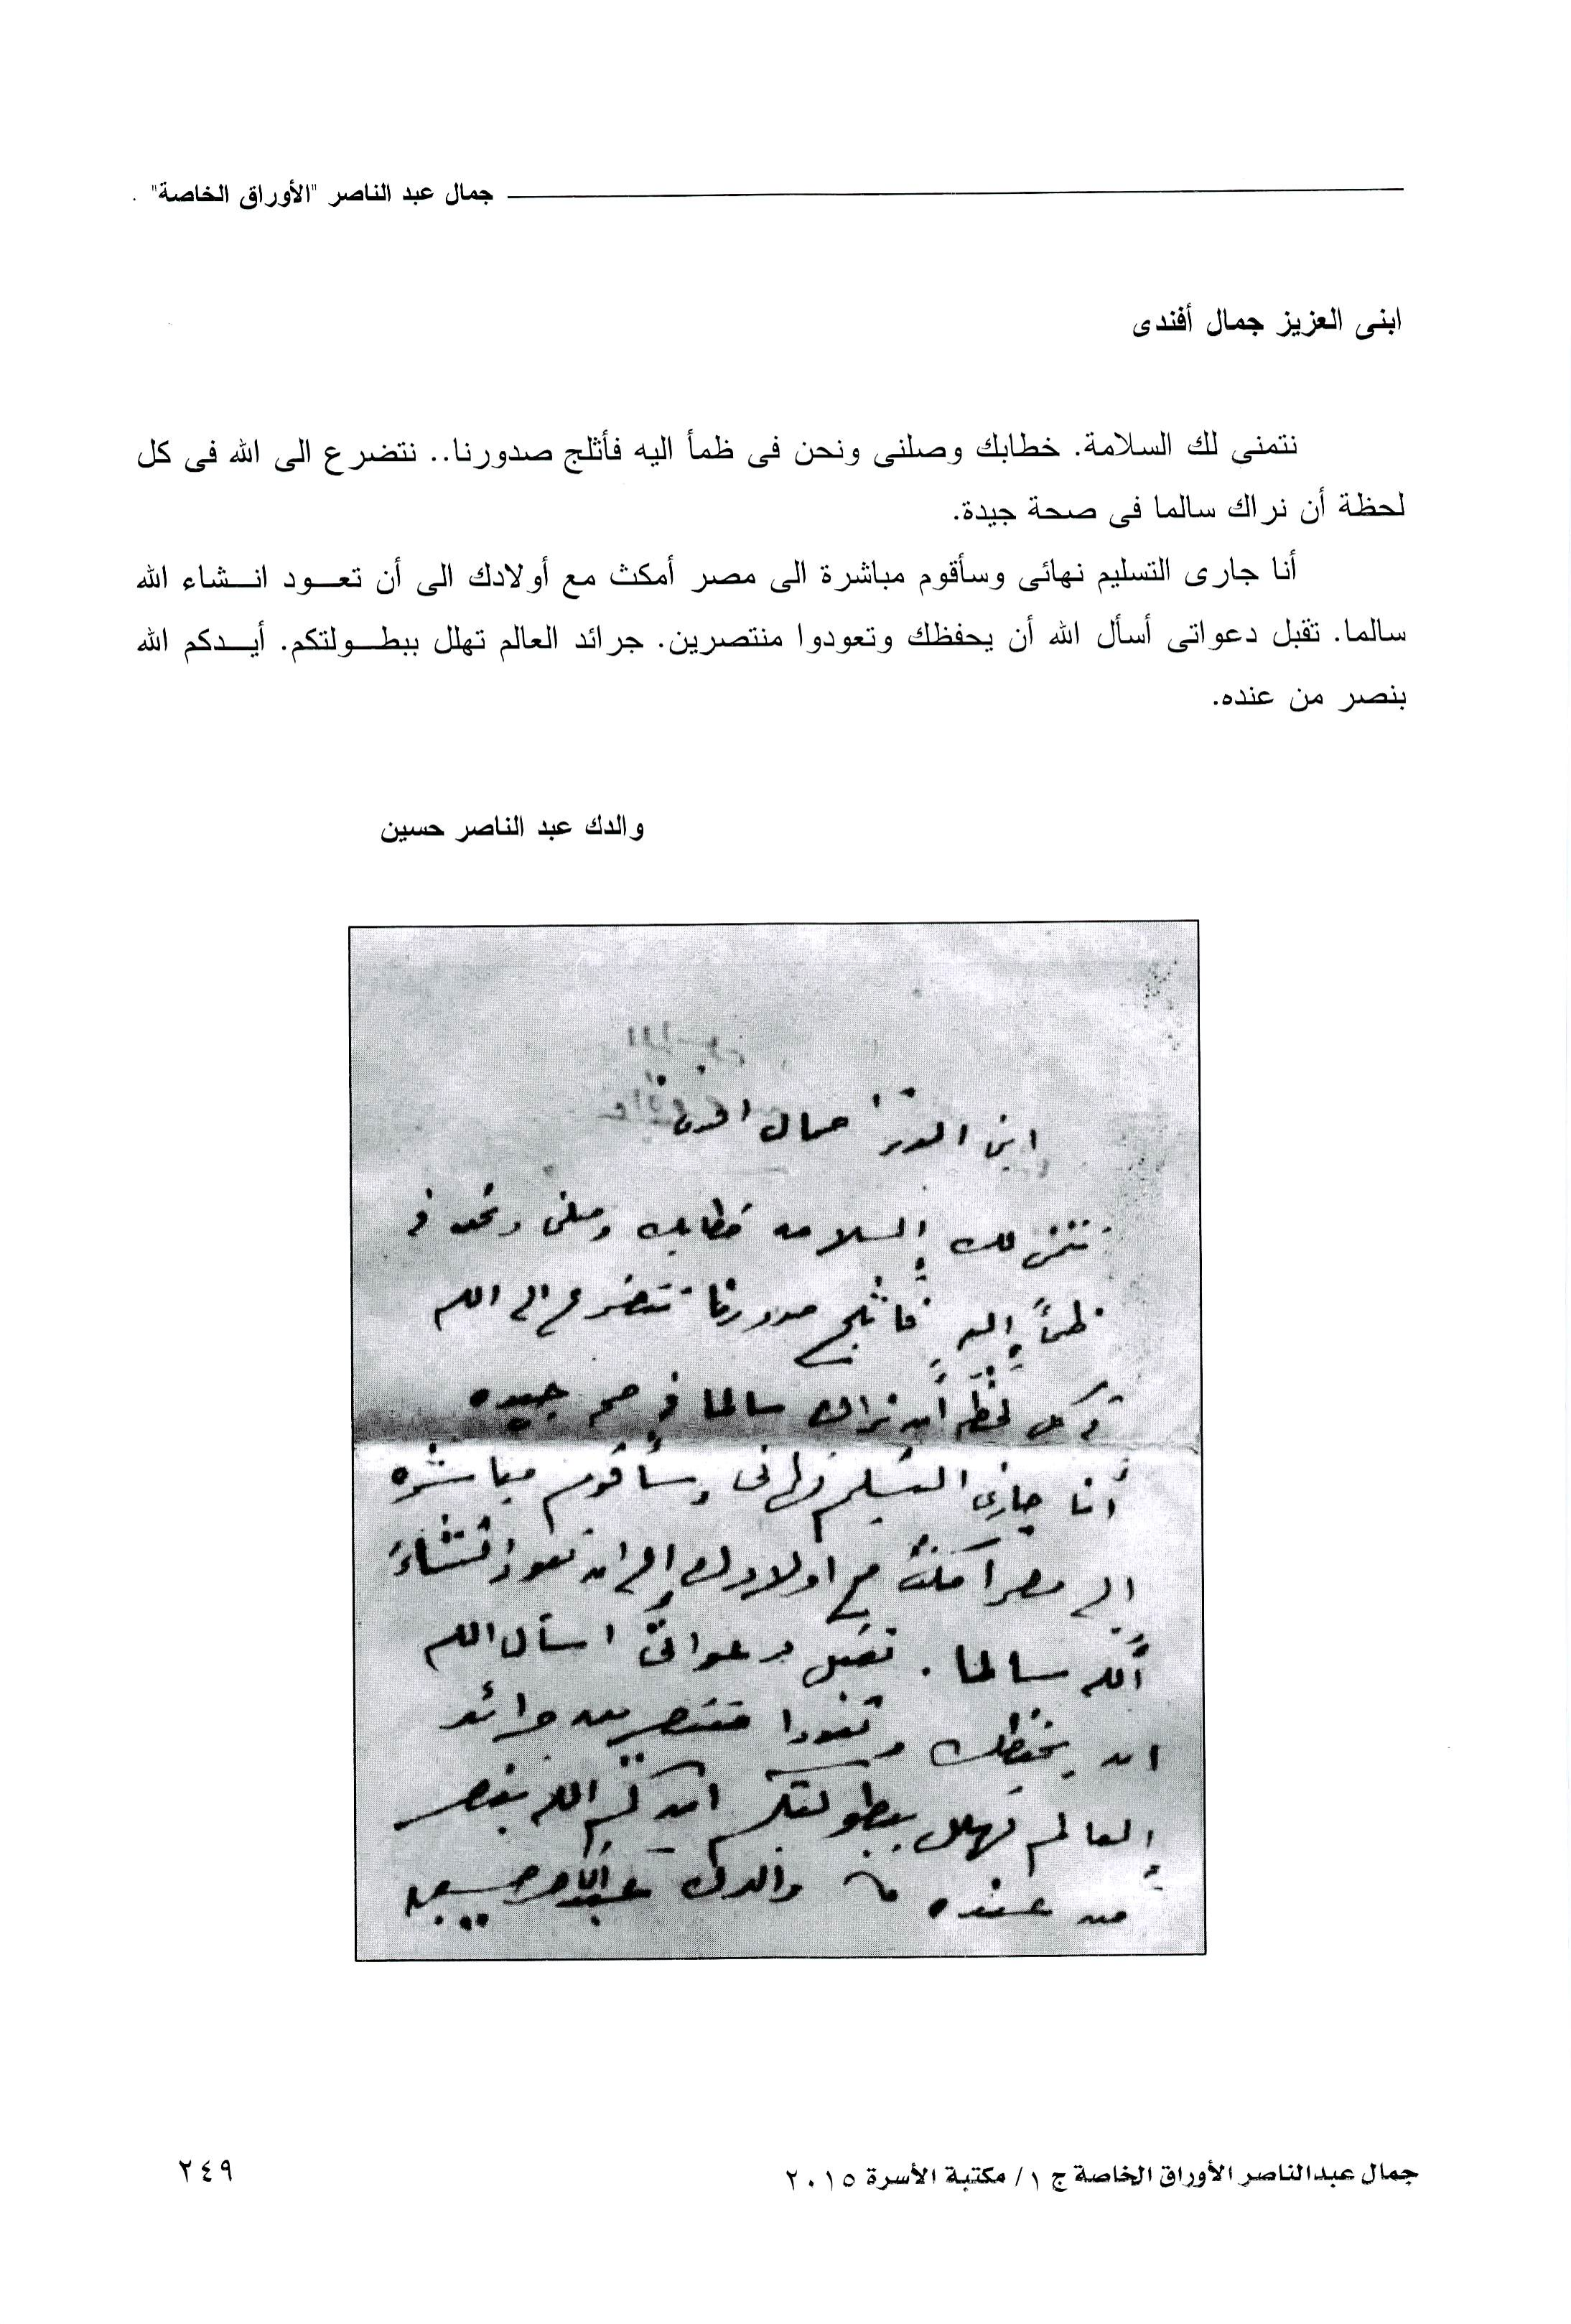 جمال عبد الناصر "الأوراق الخاصة" .
ابنى العزيز جمال أفندى
نتمنى لك السلامة. خطابك وصلنى ونحن فى ظمأ اليه فأثلج صدورنا.. نتضرع الى الله فى كل
لحظة أن نراك سالما فى صحة جيدة.
أنا جارى التسليم نهائى وسأقوم مباشرة الى مصر أمكث مع أولادك الى أن تعـــود انـــشاء الله
سالما. تقبل دعواتى أسأل الله أن يحفظك وتعودوا منتصرين. جرائد العالم تهلل ببطـــولتكم. أيـــدكم الله
بنصر من عنده.
والدك عبد الناصر حسين
ابنى العزيز جمال افندى
نتمنى لك السلامه خطابك وصلنى ونحن فى
ظمأ إليه فأثلج صدورنا نتضرع الى الله
فى كل لحظه أن نراك سالما فى صحه جيده
أنا جارى التسليم نهائى وسأقوم مباشره
الى مصر أمكث مع اولادك إلى ان تعود انشاء
الله سالما . تقبل دعواتى اسأل الله
ان يحفظك وتعودوا منتصرين جرائد
العالم تهلل ببطولتكم ايدكم الله بنصر
من عنده والدك عبد الناصر حسين
جمال عبدالناصر الأوراق الخاصة ج ١/ مكتبة الأسرة ٢٠١٥
٢٤٩